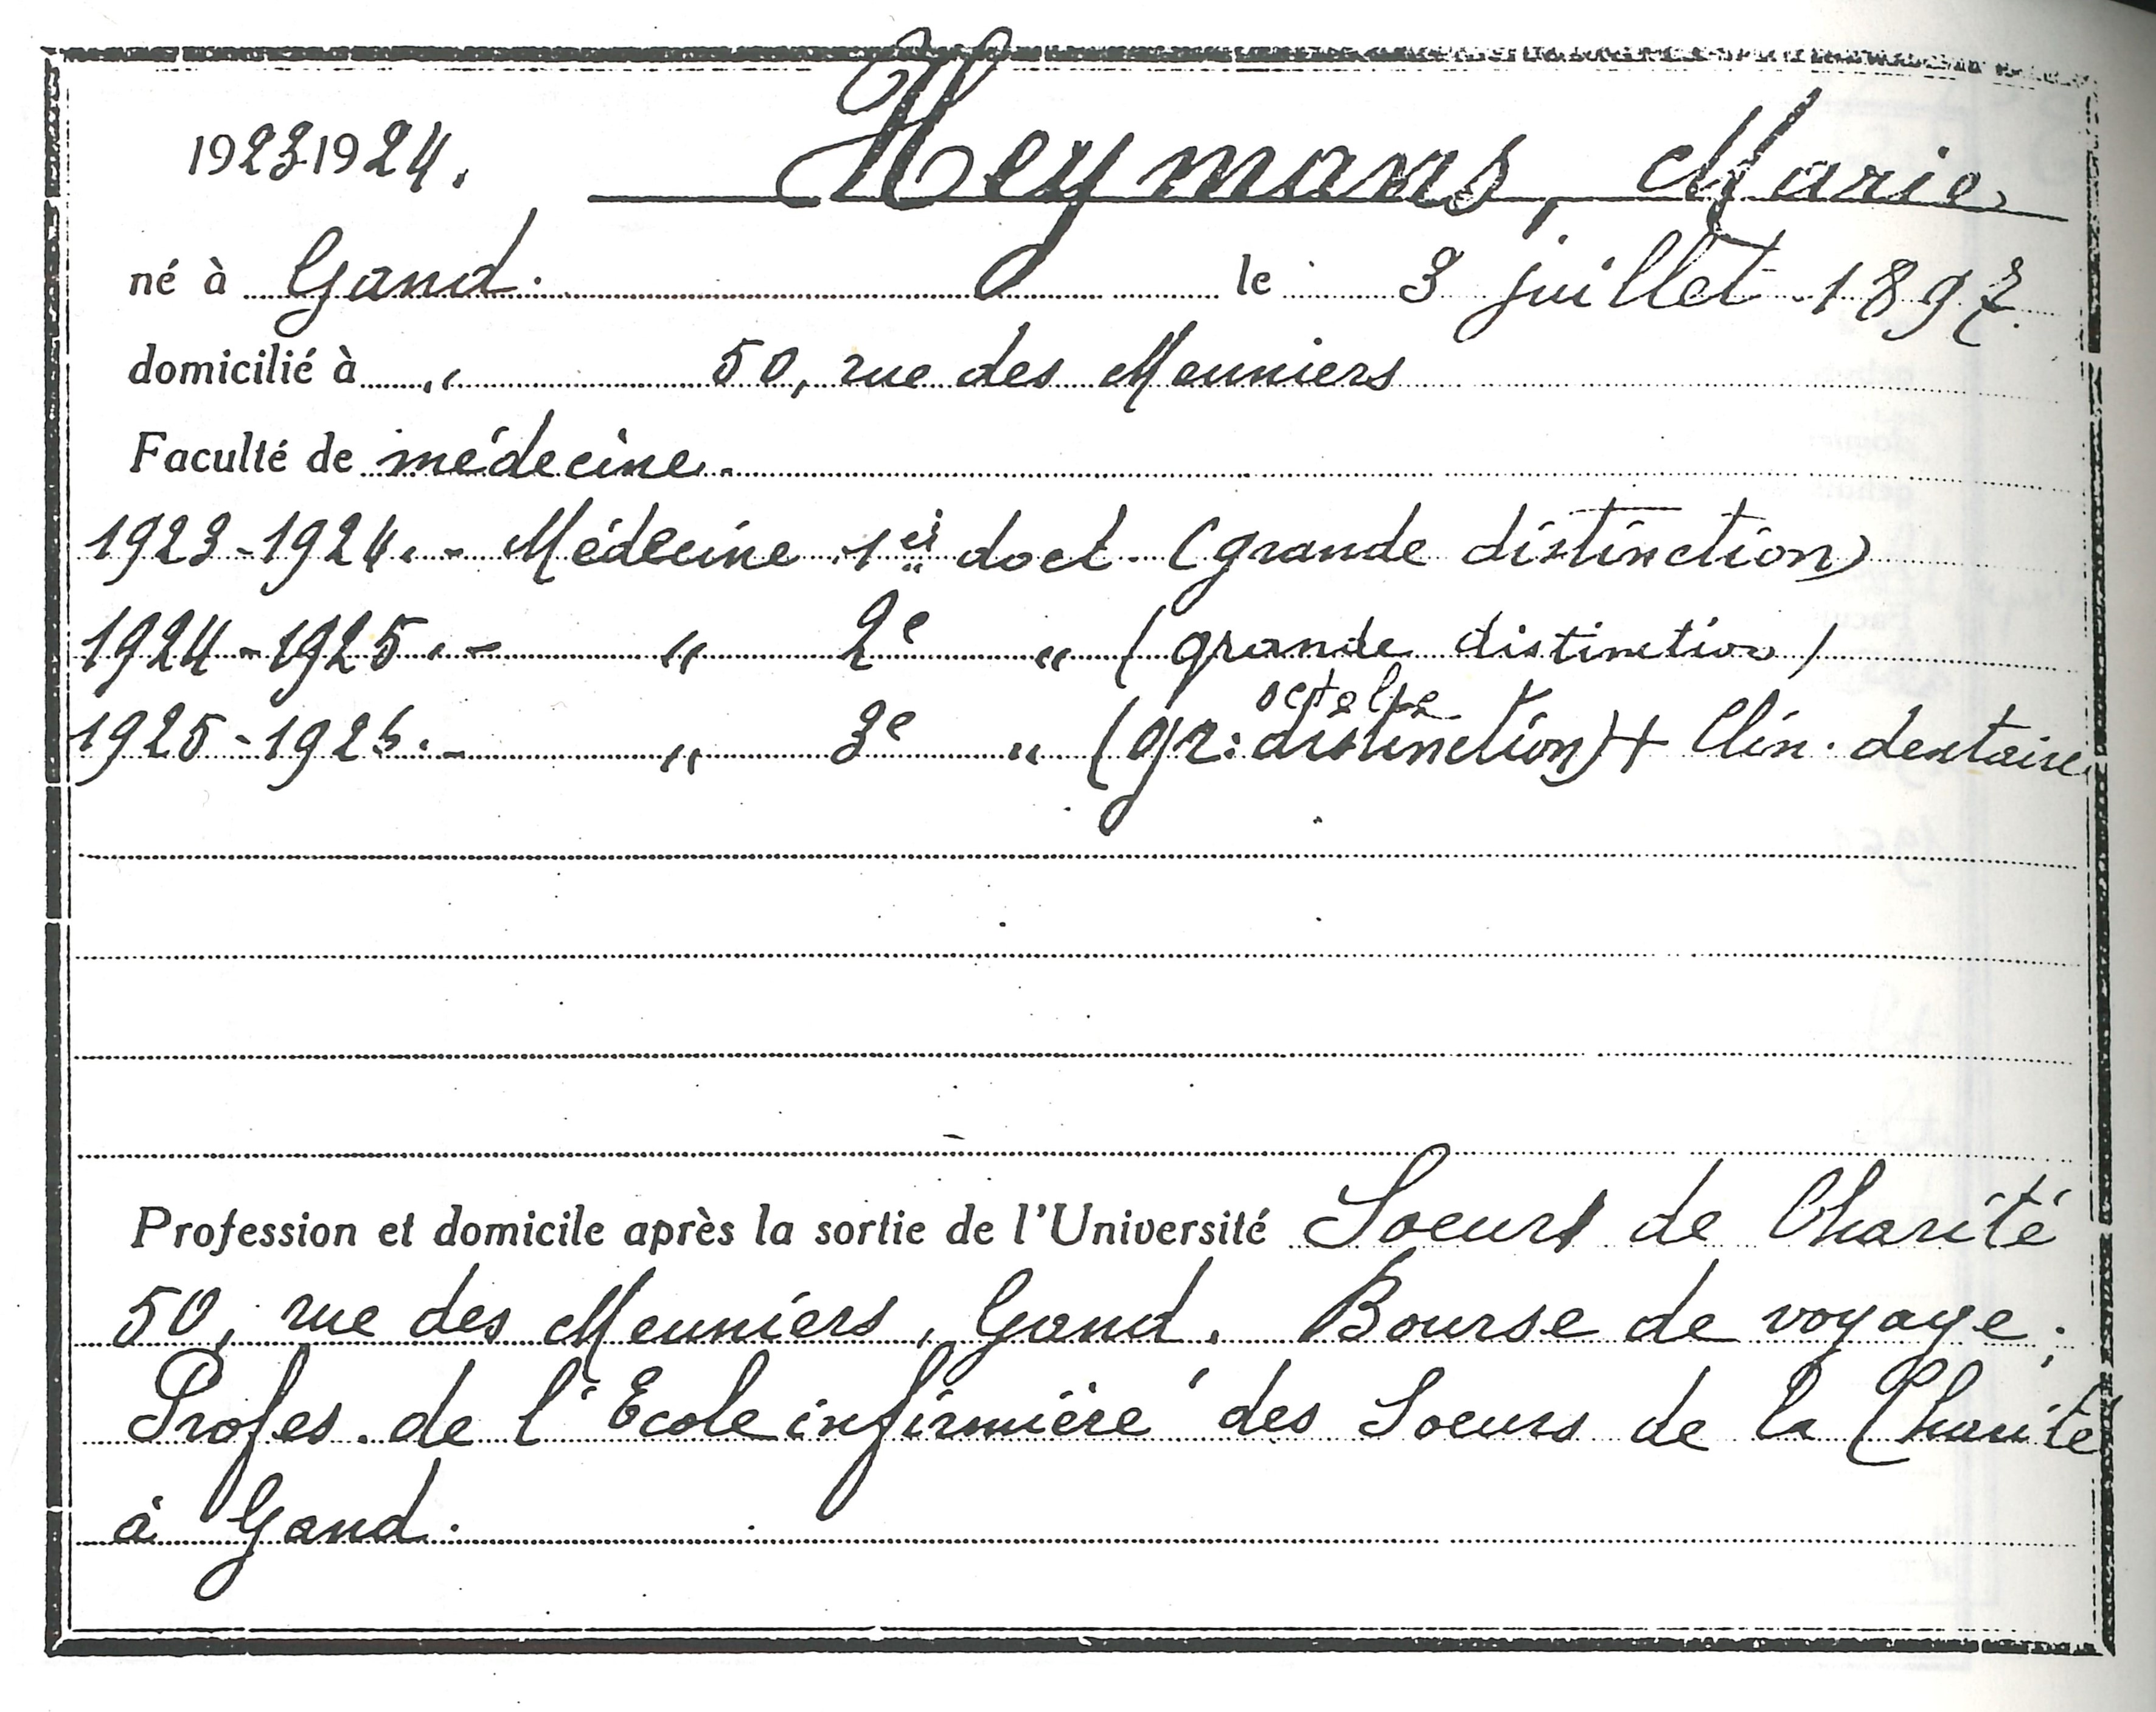 1923-1924. Heymans, Marie
né à Gand. le 3 juillet 1897.
domicilié à „ 50, rue des Meuniers
Faculté de médecine.
1923-1924. - Médecine 1er doct. (grande distinction)
1924-1925. - „ 2e „ (grande distinction)
1925-1926. - „ 3e „ (gr: distinction) + Clin. dentaire
Profession et domicile après la sortie de l'Université Soeurs de Charité
50, rue des Meuniers, Gand. Bourse de voyage;
Profes. de l'Ecole infirmière des Soeurs de la Charité
à Gand.